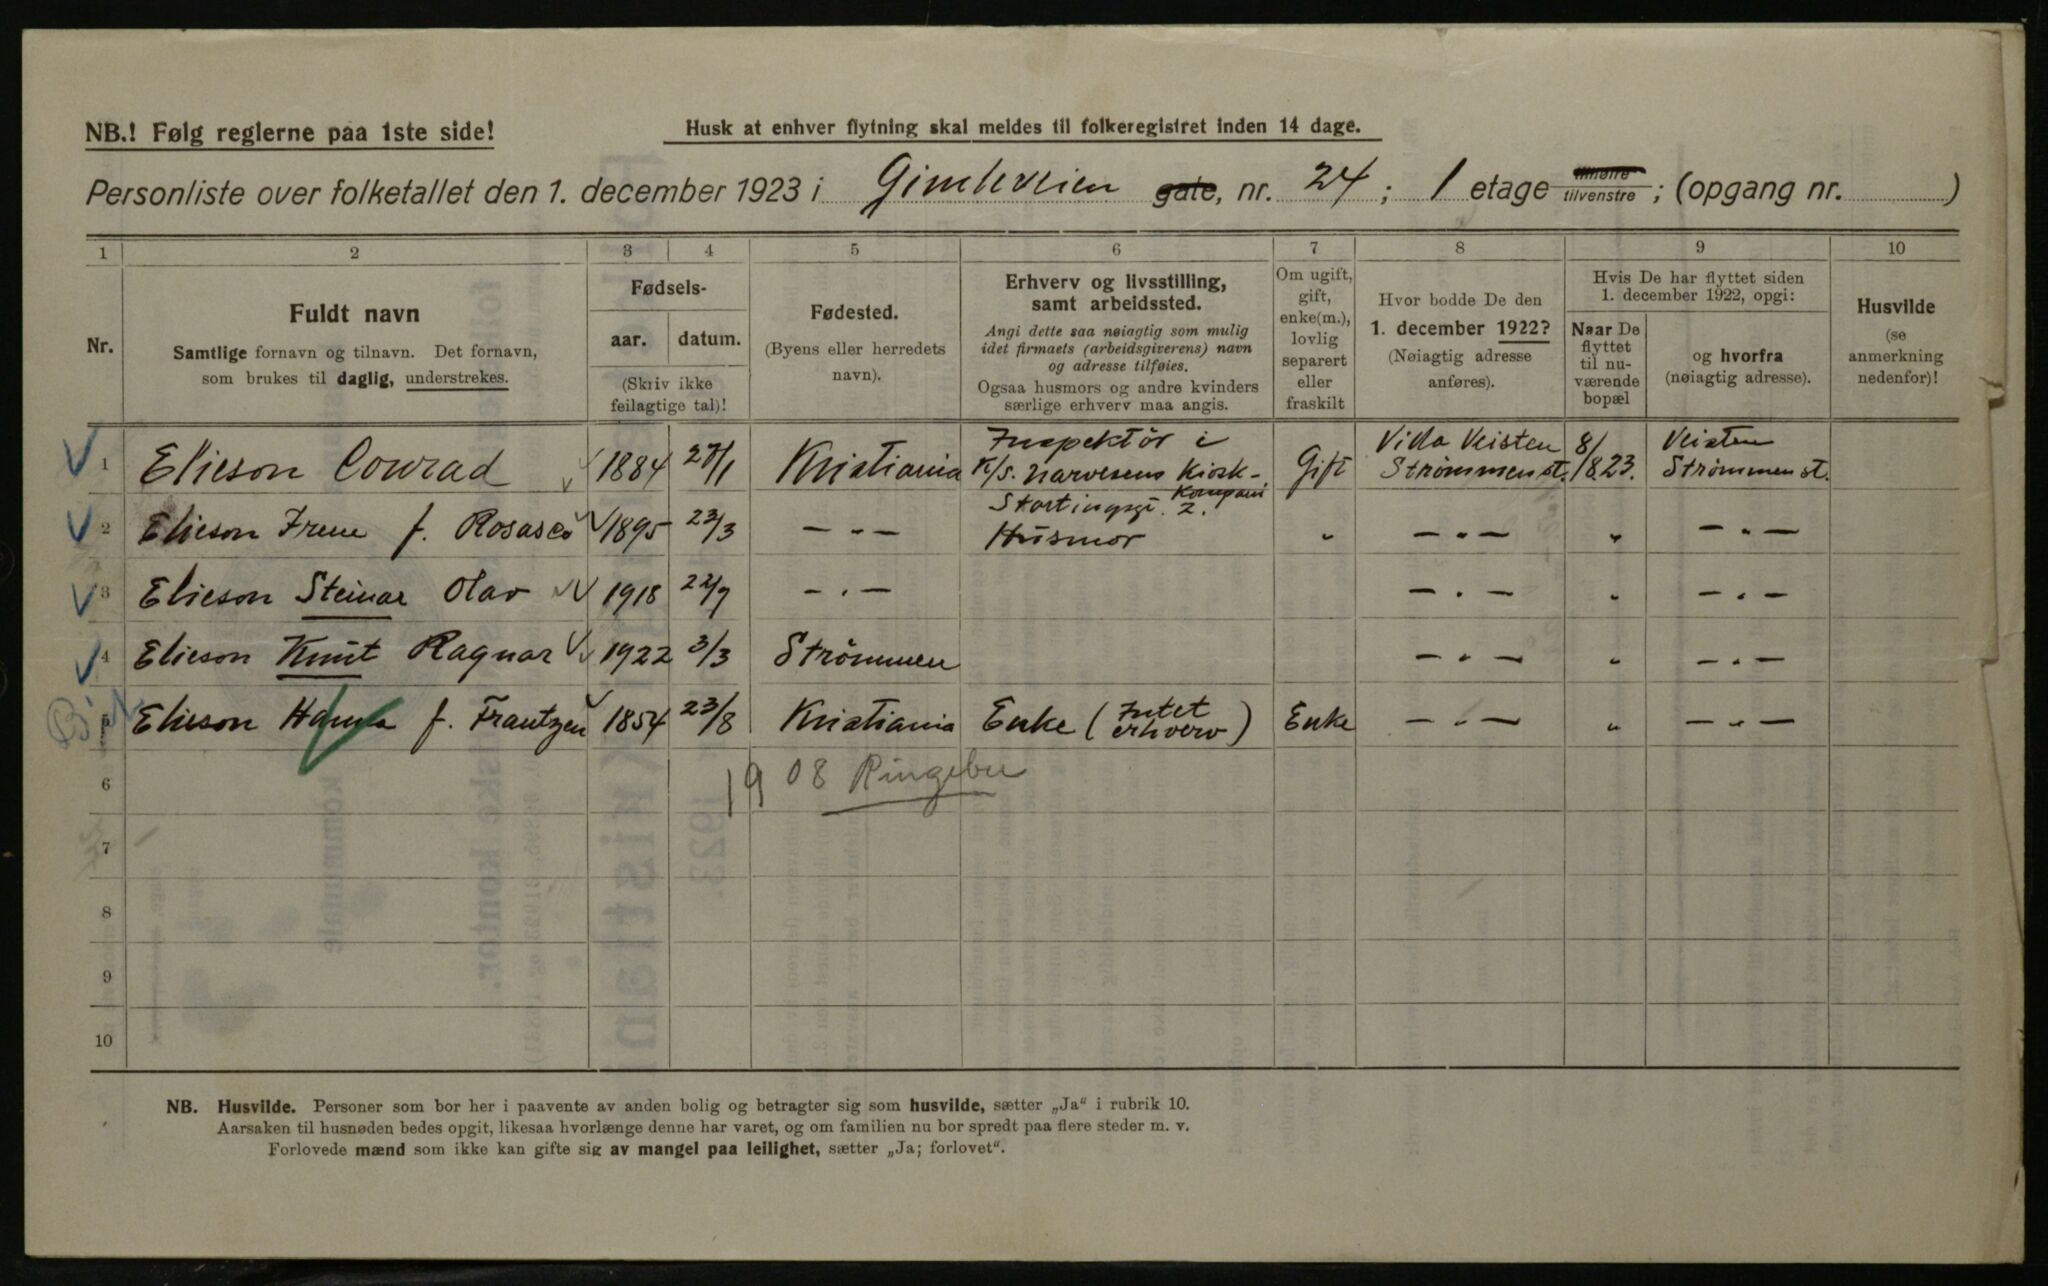 NB.! Følg reglerne paa 1ste side!
Husk at enhver flytning skal meldes til folkeregistret inden 14 dage.
Personliste over folketallet den 1. december 1923 i Gimleveien gate, nr. 24; 1 etage tilhøire / tilvenstre; (opgang nr. )
1 2 3 4 5 6 7 8 9 10
Nr.
Fuldt navn
Samtlige fornavn og tilnavn. Det fornavn,
som brukes til daglig, understrekes.
Fødsels-
aar. datum.
(Skriv ikke
feilagtige tal)!
Fødested.
(Byens eller herredets
navn).
Erhverv og livsstilling,
samt arbeidssted.
Angi dette saa nøiagtig som mulig
idet firmaets (arbeidsgiverens) navn
og adresse tilføies.
Ogsaa husmors og andre kvinders
særlige erhverv maa angis.
Om ugift,
gift,
enke(m.),
lovlig
separert
eller
fraskilt
Hvor bodde De den
1. december 1922?
(Nøiagtig adresse
anføres).
Hvis De har flyttet siden
1. december 1922, opgi:
Naar De
flyttet
til nu-
værende
bopæl
og hvorfra
(nøiagtig adresse).
Husvilde
(se
anmerkning
nedenfor)!
1 Elieson Conrad 1884 27/1 Kristiania Inspektör i
K/S. Narvesens Kiosk-
Kompani
Stortingsgt. 2. Gift Villa Veisten
Strömmen st. 8/1 823. Veisten
Strömmen st.
2 Elieson Irene f. Rosasco 1895 23/3 — „ — Husmor „ — „ — „ — „ —
3 Elieson Steinar Olav 1918 22/7 — „ — — „ — „ — „ —
4 Elieson Knut Ragnar 1922 3/3 Strömmen — „ — „ — „ —
5 Elieson Hanna f. Frantzen 1854 23/8 Kristiania Enke (Intet
erhverv) Enke — „ — „ — „ —
6 1908 Ringebu
7
8
9
10
NB. Husvilde. Personer som bor her i paavente av anden bolig og betragter sig som husvilde, sætter „Ja“ i rubrik 10.
Aarsaken til husnøden bedes opgit, likesaa hvorlænge denne har varet, og om familien nu bor spredt paa flere steder m. v.
Forlovede mænd som ikke kan gifte sig av mangel paa leilighet, sætter „Ja; forlovet“.